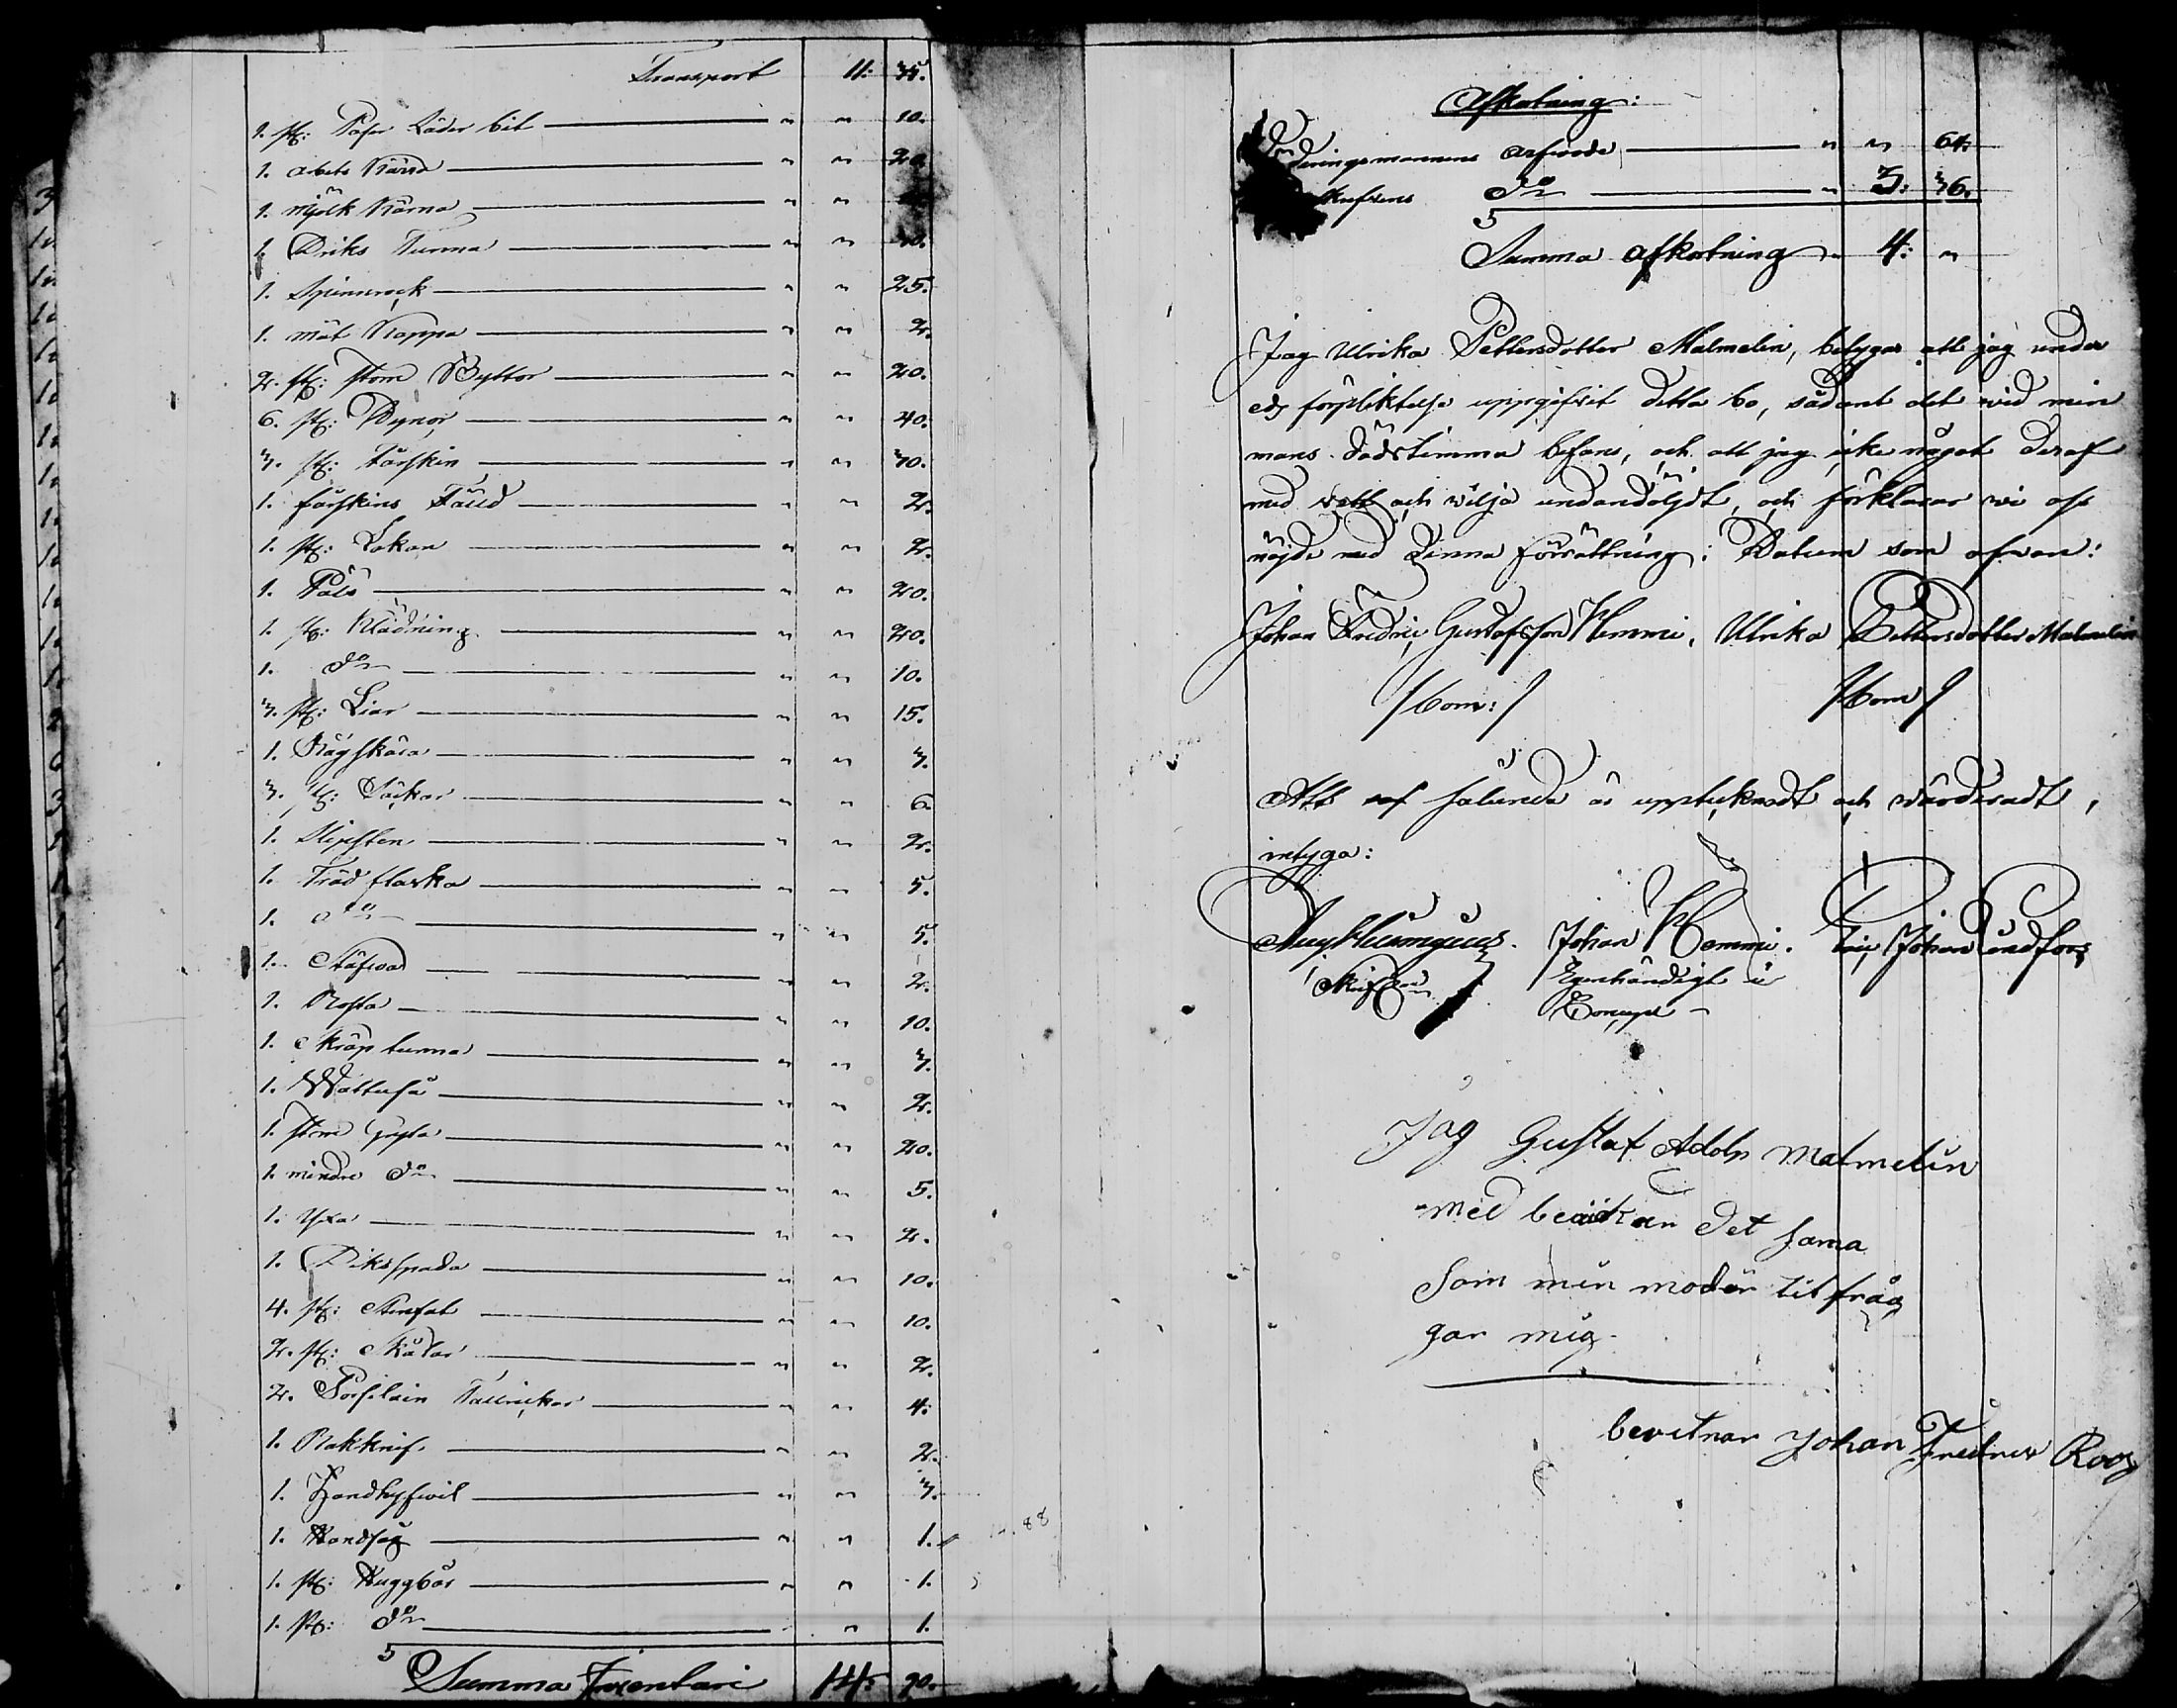 Transport 11: 75.
1. st: Påse Läder bit " " 10.
1. arbets Kärra " " 20
1. mjölk Kärna " "
1. Driks Tunna " "
1. Spinnrock " " 25.
1. måt Kappa " " 2.
2. st: stora Byttor " " 20.
6. st: Dynor " " 40.
3. st: Fårskin " " 30.
1. fårskins Fäll " " 2.
1. st: Lakan " " 2.
1. Päls " " 20.
1. st: Klädning " " 20.
1. Do " " 10.
3. st: Liar " " 15.
1. Rågskära " " 3.
3. st: Säckar " " 6.
1. Slipsten " " 2.
1. Träd flaska " " 5.
1. do " " 5.
1. Stäfva " " 2.
1. " " 10.
1. Skräp tunna " " 3.
1. Wattuså " " 2.
1. stor Gryta " " 20.
1. mindre Do " " 5.
1. Yxa " " 2.
1. Dikspada " " 10.
4. st: Stenfat " " 10.
2. st: Skålar " " 2.
2. Porslain Tallrickar " " 4.
1. Rakknif " " 2.
1. Handhyfwel " " 3.
1. Handsåg " " 1.
1. st: Huggbår " " 1.
1. st: Do " 1.
Summa Inventari 14: 90.
Afkortning:
Värderingsmannens arfwode " " 64.
Skrifvens Do " 3: 36.
Summa afkortning " 4: "
Jag Ulrika Pettersdotter Malmelin, betygar att jag under
eds förpliktelse uppgifvit detta bo, sådant det wid min
mans dödstimma befans, och att jag icke något deraf
med wett och wilja undandöljdt, och förklarar wi oss
nöjde med denna förrättning: Datum som ofvan:
Johan Fredric Gustafsson Hemmi, Ulrika Pettersdotter Malmelin
/bom:/ /bom/
Att så sålunda är upptecknadt och wärderadt,
intyga:
Johan Hemmi. Eric Johan Lindfors
Skrifvare Egenhändigt i
Concept
Jag Gustaf Adolp Malmelin
med beäikan det sama
som min moder tilfråg
gar mig
bevitnar Johan Fredrik Roos